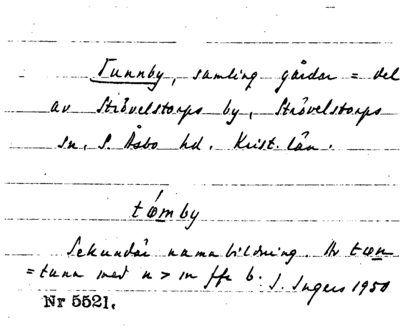 Tunnby, samling gårdar = del
av Strövelstorps by, Strövelstorps
sn. S. Åsbo hd. Krist. län.
tǿmby
Sekundär namnbildning. Av tøn
= tunn med n > m ffr b. I. Ingers 1950
Nr 5521.